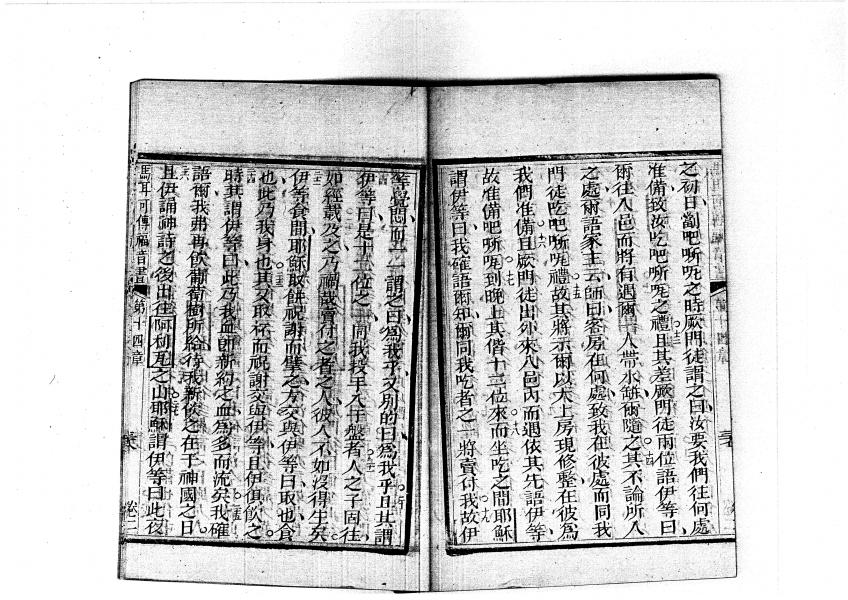 之初日劏吧𠵽呢之時厥門徒謂之曰汝要我們往何處
准備致汝吃吧𠵽呢之禮且其差厥門徒兩位語伊等曰
爾往入邑而將有遇爾一人帶水餅爾隨之其不論所入
之處爾語家主云師曰客房在何處致我在彼處而同我
門徒吃吧𠵽呢禮故其將示爾以大上房現修整在彼為
我們准備且厥門徒出外來入邑內而遇依其先語伊等
故准備吧𠵽呢到晚上其偕十二位來而坐吃之間耶穌
謂伊等曰我確語爾知爾同我吃者之一將賣付我故伊
等覺悶而一一謂之曰為我乎又別的曰為我乎且其謂
伊等曰是十二位之一同我投手入于盤者人之子固往
如經載及之乃禍哉賣付之者之人彼人不如沒得生矣
伊等食間耶穌取餅祝謝而擘之方交與伊等曰取也食
也此乃我身也其又取杯而祝謝交與伊等且伊俱飲之
時其謂伊等曰此乃我血即新約之血為多而流矣我確
語爾我弗再飲葡萄樹所給待我新飲之在于神國之日
且伊誦神詩之後出往阿利瓦之山耶穌謂伊等曰此夜
馬耳可傳福音書
第十四章
卷二